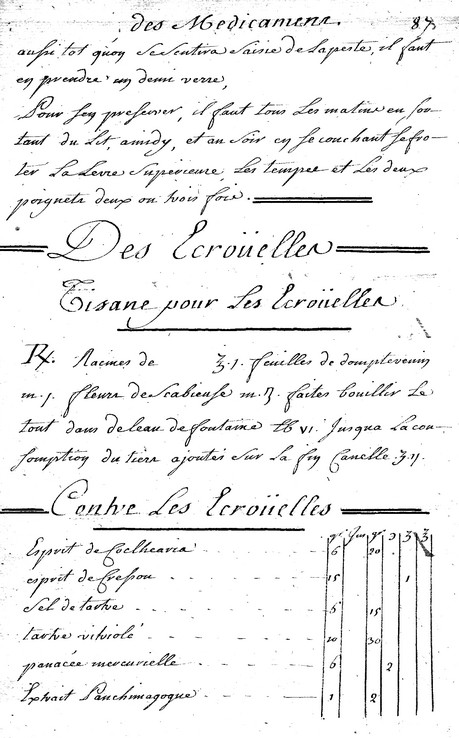 des Medicamens. 87
aussi tot quon se sentira saisie de la peste, il faut
en prendre un demi verre,
Pour s'en preserver, il faut tous les matins en sor-
tant du Lit, amidy, et au soir en se couchant se fro-
ter La Levre Superieure, les temples et Les deux
poignets deux ou trois fois.
Des Ecroüelles
Tisane pour les Ecroüelles
℞. Racines de ʒ.1. feuilles de domptevenin
m.1. fleurs de Scabieuse m.ʒ. faites bouillir Le
tout dans de leau de fontaine ℔ vi. Jusqua La con-
somption du tiers ajoutés sur La fin Canelle ʒ.ij.
Contre Les Ecroüelles
Esprit de Coclhearia 6 20
esprit de Cresson 15 1
Sel de tartre 5 15
tartre vitriolé 10 30
panacée mercurielle 6 2
Extrait Panchimagogue 1 2